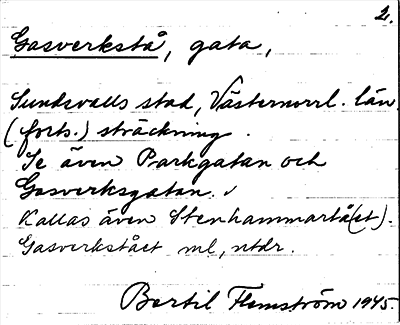 2.
Gasverkstå, gata,
Sundsvalls stad, Västernorrl. län.
(forts.) sträckning.
Se även Parkgatan och
Gasverksgatan.
Kallas även Stenhammartå(et).
Gasverkstået ml, ntdr.
Bertil Flemström 1945.